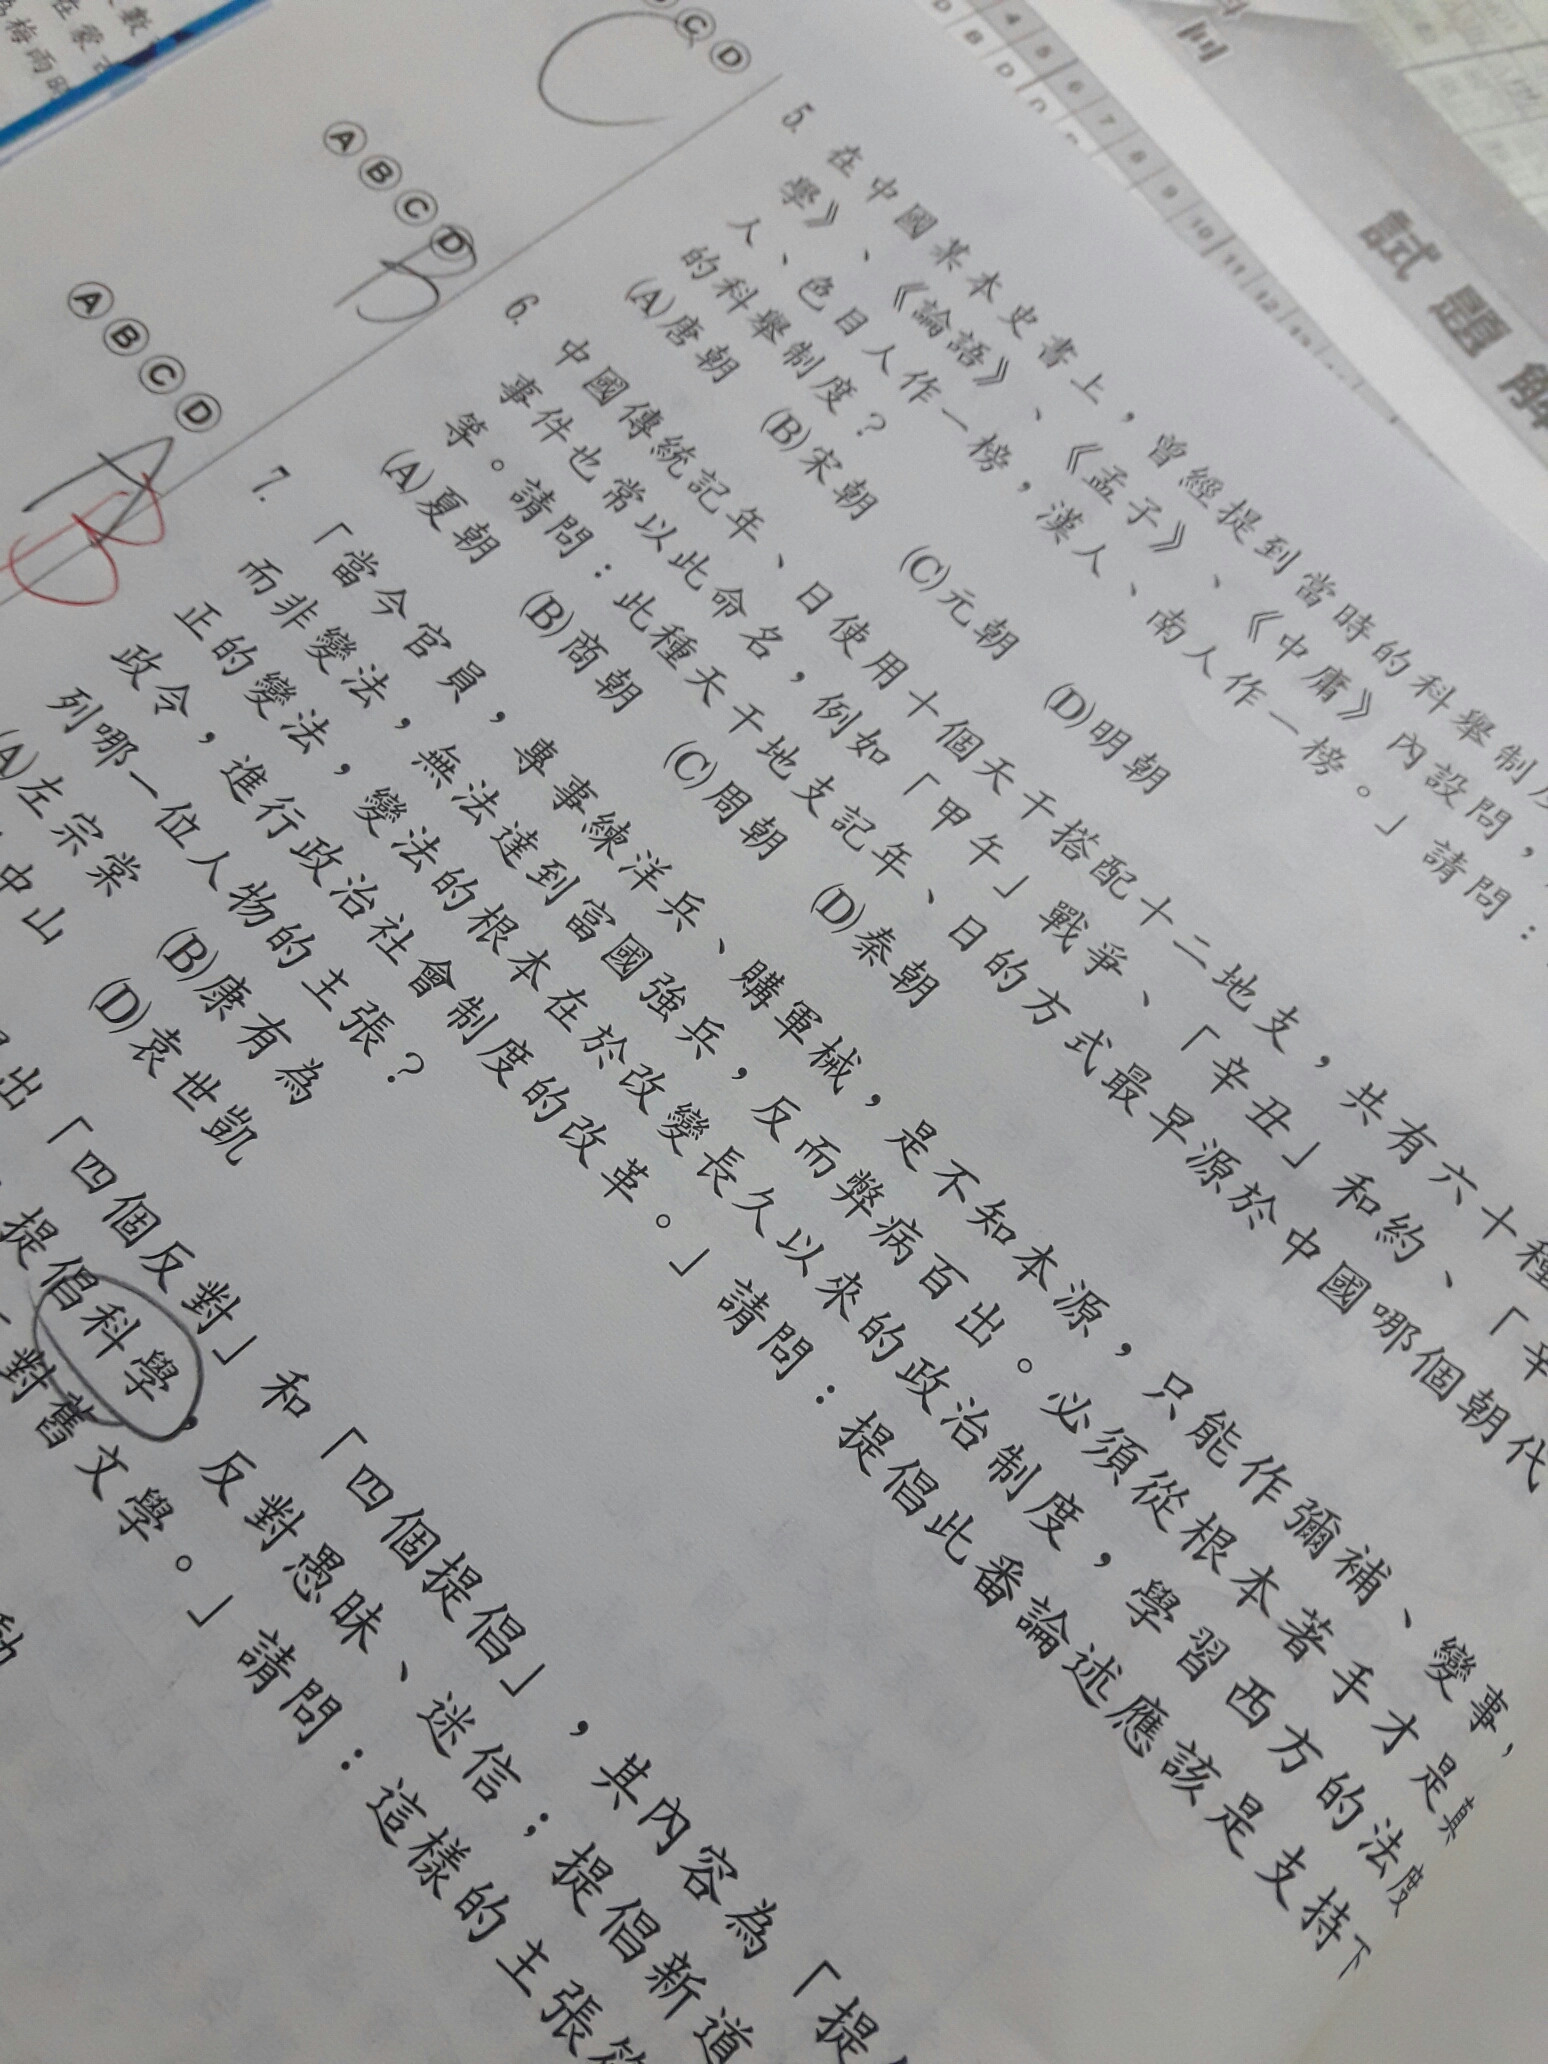 試題解
4 5 6 7 8 9 10 11 12
D B D
Ⓒ Ⓓ
C
5. 在中國某本史書上，曾經提到當時的科舉制度
學》、《論語》、《孟子》、《中庸》內設問，
人、色目人作一榜，漢人、南人作一榜。」請問：
的科舉制度？
(A)唐朝 (B)宋朝 (C)元朝 (D)明朝
Ⓐ Ⓑ Ⓒ Ⓓ
B
6. 中國傳統記年、日使用十個天干搭配十二地支，共有六十種
事件也常以此命名，例如「甲午」戰爭、「辛丑」和約、「辛
等。請問：此種天干地支記年、日的方式最早源於中國哪個朝代
(A)夏朝 (B)商朝 (C)周朝 (D)秦朝
Ⓐ Ⓑ Ⓒ Ⓓ
A
B
7. 「當今官員，專事練洋兵、購軍械，是不知本源，只能作彌補、變事，
而非變法，無法達到富國強兵，反而弊病百出。必須從根本著手才是真
正的變法，變法的根本在於改變長久以來的政治制度，學習西方的法度
政令，進行政治社會制度的改革。」請問：提倡此番論述應該是支持下
列哪一位人物的主張？
(A)左宗棠 (B)康有為
中山 (D)袁世凱
出「四個反對」和「四個提倡」，其內容為「提
提倡科學，反對愚昧、迷信；提倡新道
對舊文學。」請問：這樣的主張符